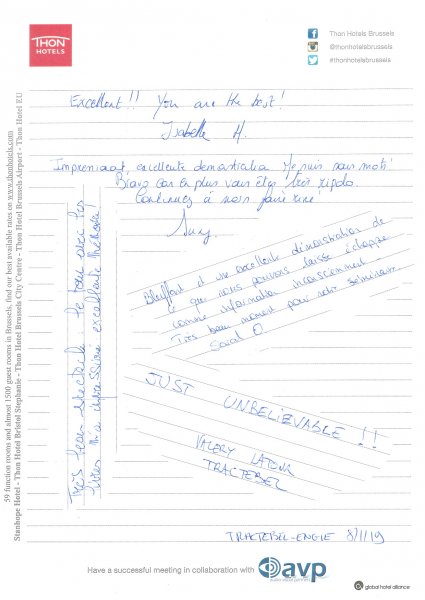 THON
HOTELS
Thon Hotels Brussels
@thonhotelsbrussels
#thonhotelsbrussels
Excellent!! You are the best!
Isabelle H.
Impressionnant, excellente démonstration Je suis sans mots!
Bravo car en plus vous êtes très rigolo.
Continuez à nous faire rire
Bluffant et une excellente démonstration de
ce que nous pouvons laisser échapper
comme information inconsciemment.
Très beau moment pour notre séminaire.
Sarah O.
Très beau spectacle. Le tour avec les
livres m'a impressionné excellente Mémoire!
JUST UNBELIEVABLE !!
VALERY LATOUR
TRACTEBEL
TRACTEBEL-ENGIE 8/1/19
59 function rooms and almost 1500 guest rooms in Brussels, find our best available rates on www.thonhotels.com
Stanhope Hotel - Thon Hotel Bristol Stephanie - Thon Hotel Brussels City Centre - Thon Hotel Brussels Airport - Thon Hotel EU
Have a successful meeting in collaboration with
avp
audio visual partners
global hotel alliance